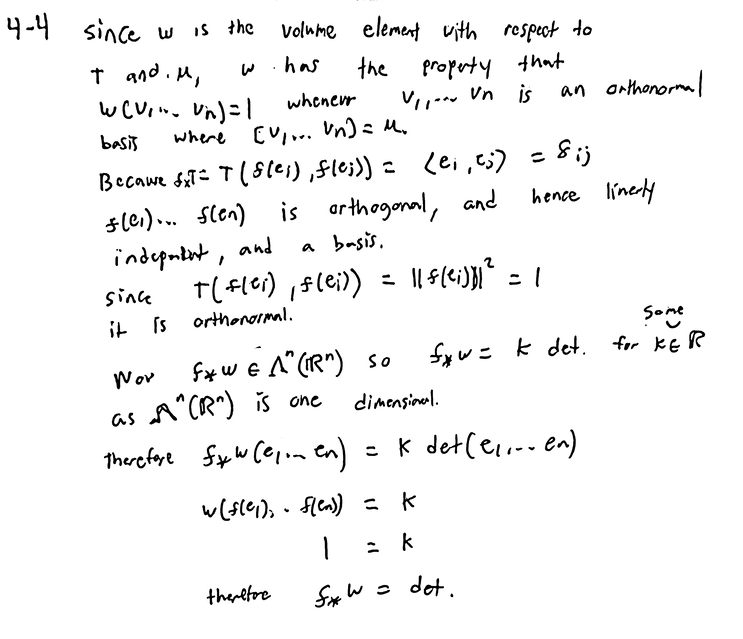 4-4 since w is the volume element with respect to
T and μ, w has the property that
w(v₁,... vₙ)=1 whenever v₁,... vₙ is an orthonormal
basis where [v₁,... vₙ]= μ.
Because f*T= T(f(ei), f(ej)) = ⟨ei, ej⟩ = δij
f(e₁)... f(en) is orthogonal, and hence linerly
independent, and a basis.
since T(f(ei), f(ei)) = ||f(ei)||² = 1
it is orthonormal.
Now f*w ∈ Λⁿ(ℝⁿ) so f*w = k det. for some k∈ℝ
as Λⁿ(ℝⁿ) is one dimensional.
therefore f*w(e₁,... en) = k det(e₁,... en)
w(f(e₁), . f(en)) = k
1 = k
therefore f*w = det.